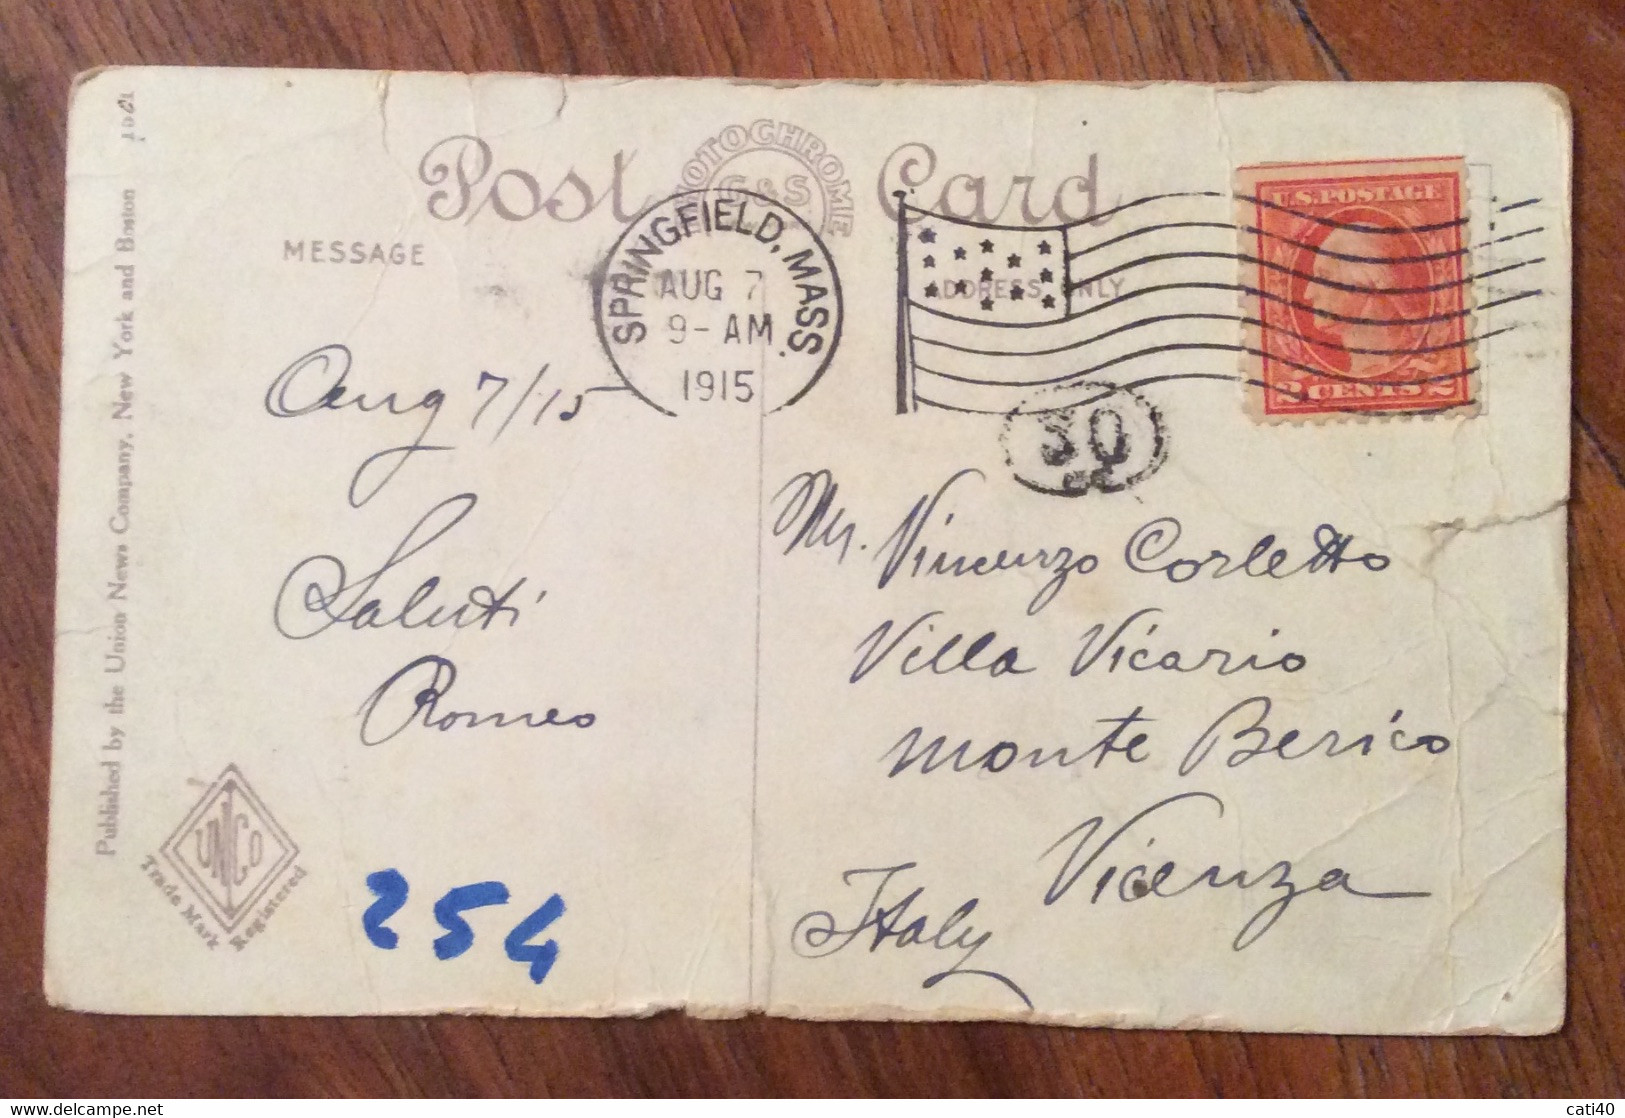 Post Card
PHOTOCHROME
C & S
MESSAGE
ADDRESS ONLY
SPRINGFIELD, MASS.
AUG 7
9-AM
1915
U.S. POSTAGE
2 CENTS 2
30
Aug 7/15
Saluti
Romeo
Mr. Vincenzo Corletto
Villa Vicario
Monte Berico
Vicenza
Italy
254
UNCO
Trade Mark Registered
Published by the Union News Company, New York and Boston
cati40